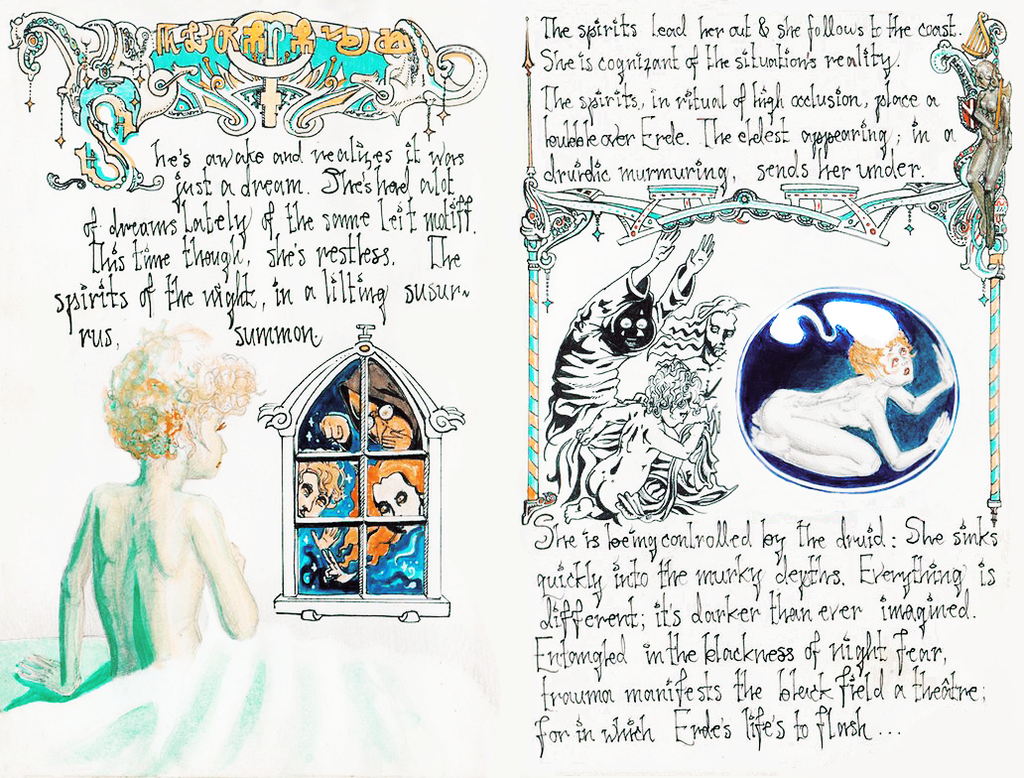 She's awake and realizes it was
just a dream. She's had a lot
of dreams lately of the same leit motiff.
This time though, she's restless. The
spirits of the night, in a lilting susur~
rus, summon
The spirits lead her out & she follows to the coast.
She is cognizant of the situation's reality.
The spirits, in ritual of high occlusion, place a
bubble over Erde. The eldest appearing; in a
druidic murmuring, sends her under.
She is being controlled by the druid: She sinks
quickly into the murky depths. Everything is
different; it's darker than ever imagined.
Entangled in the blackness of night fear,
trauma manifests the black field a theâtre;
for in which Erde's life's to flash...